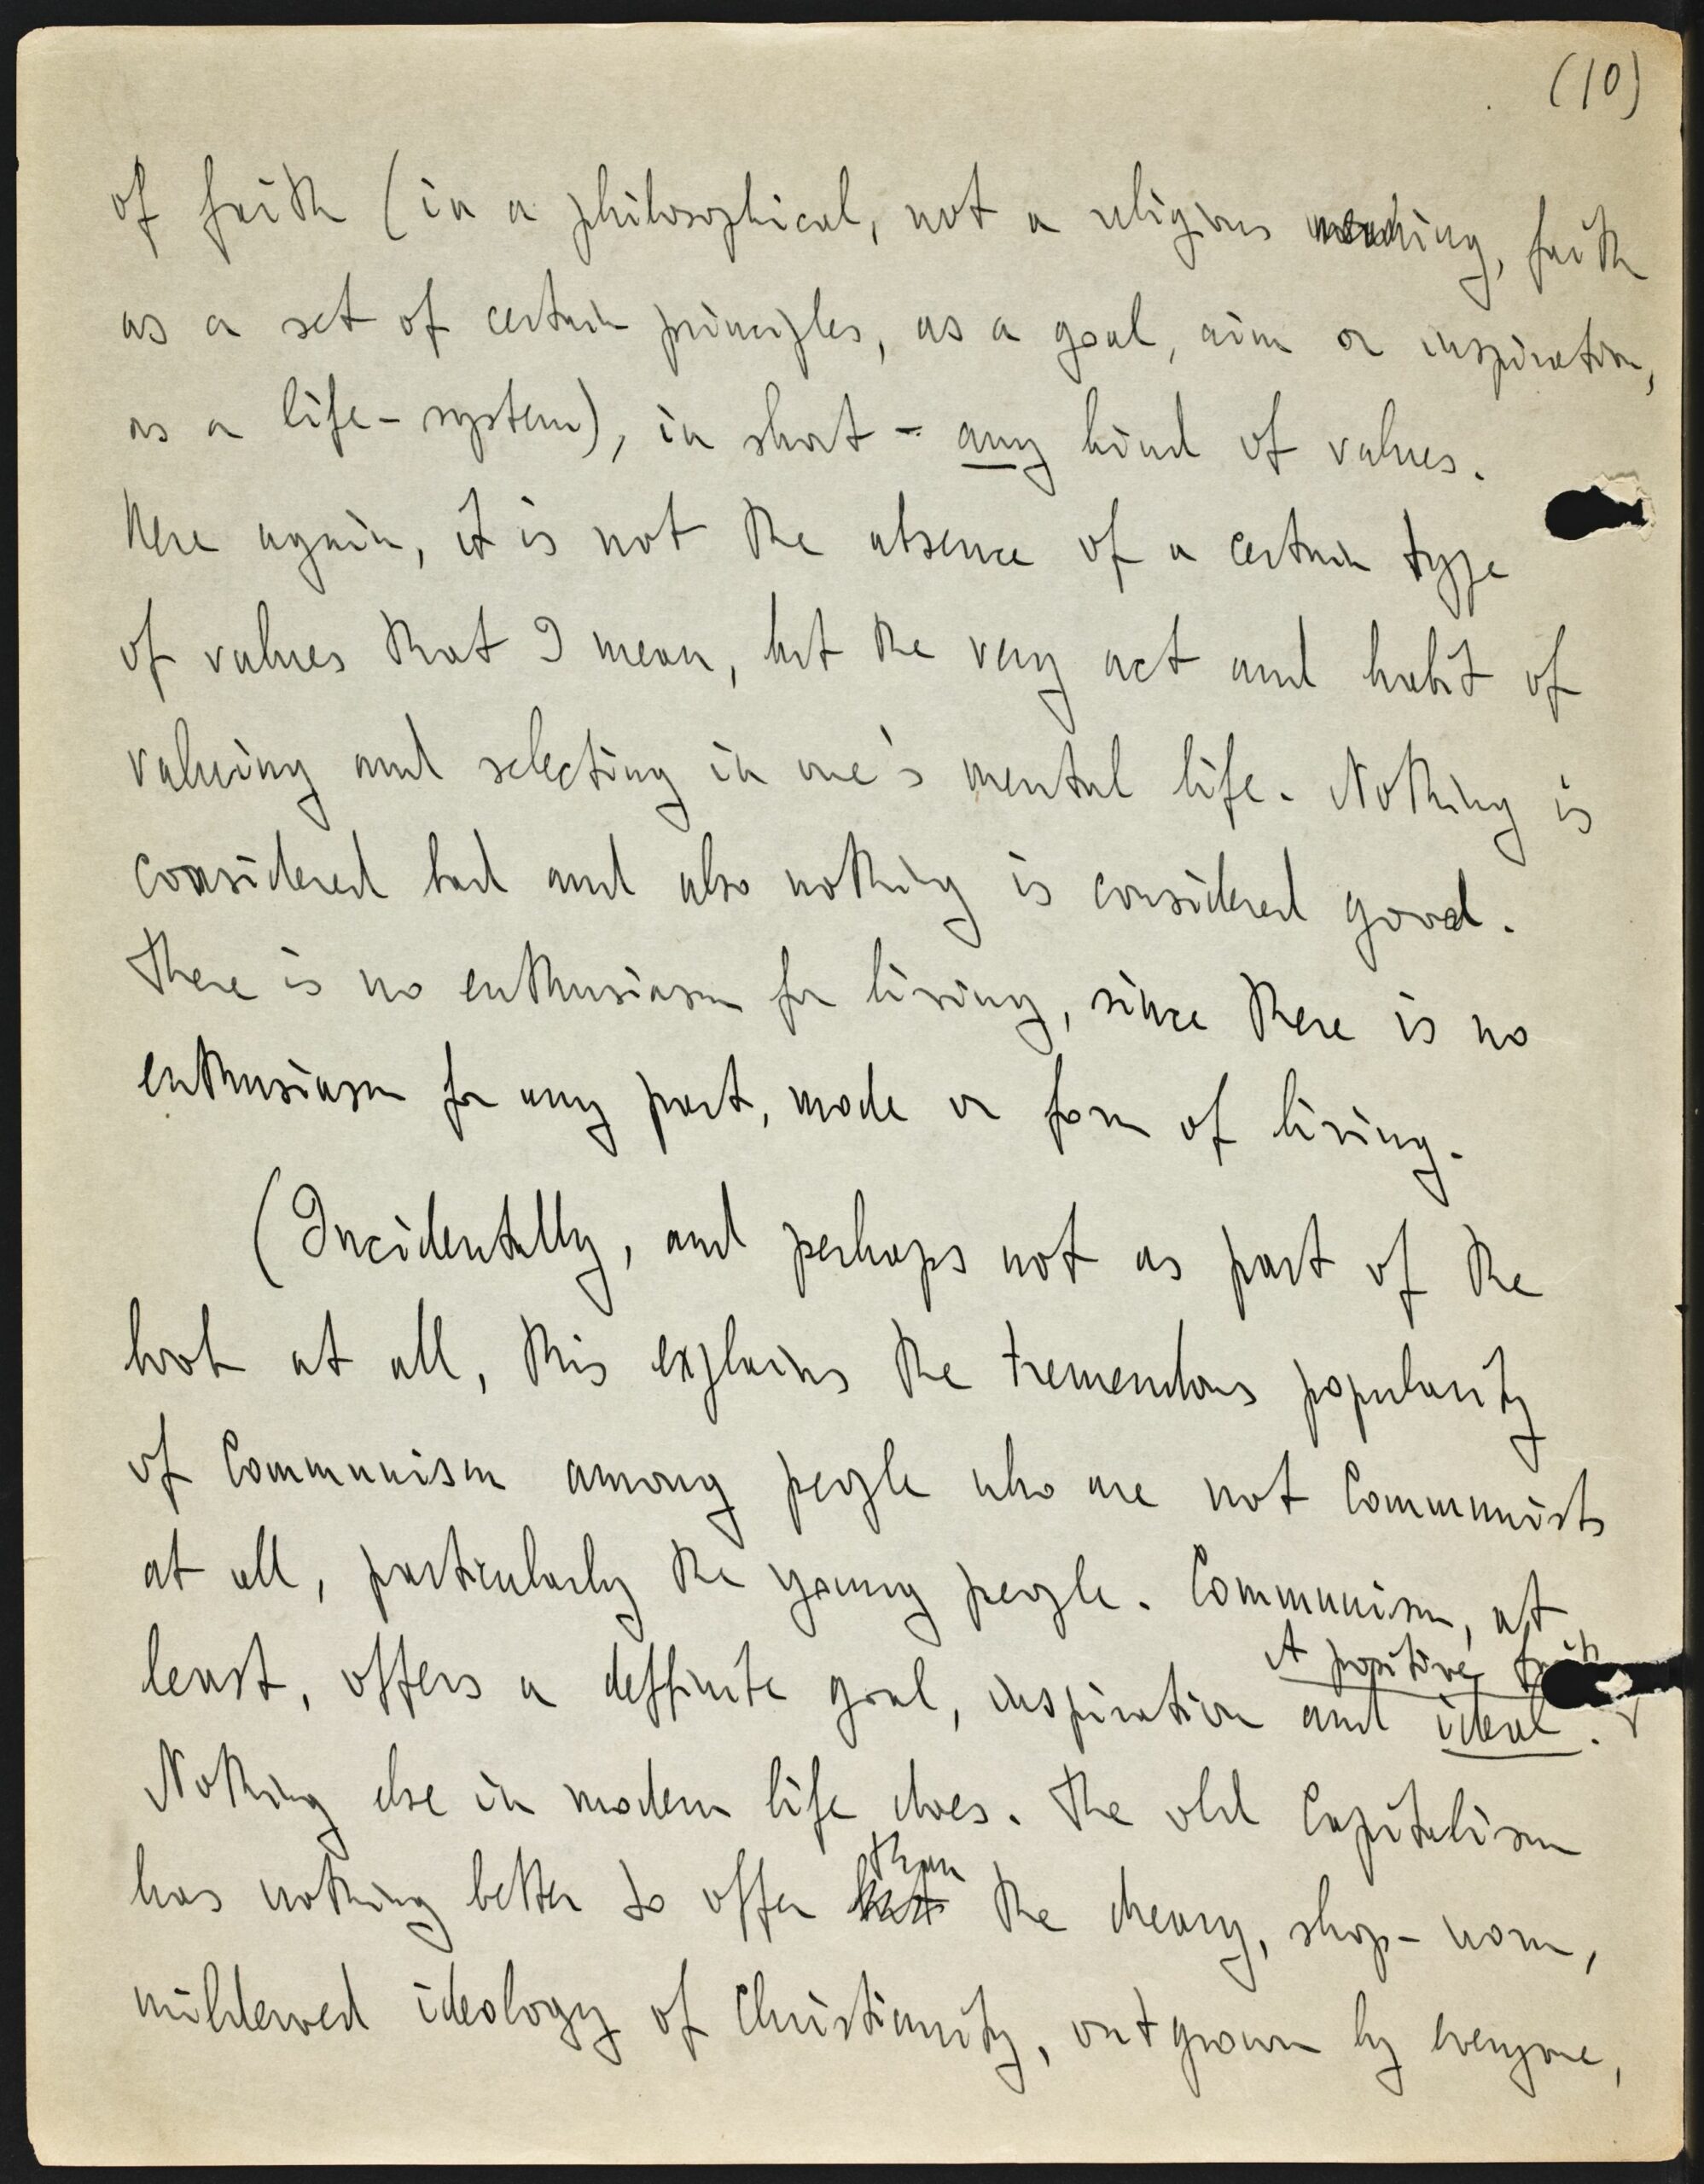 (10)
of faith (in a philosophical, not a religious meaning, faith
as a set of certain principles, as a goal, aim or inspiration,
as a life-system), in short - any kind of values.
Here again, it is not the absence of a certain type
of values that I mean, but the very act and habit of
valuing and selecting in one's mental life. Nothing is
considered bad and also nothing is considered good.
There is no enthusiasm for living, since there is no
enthusiasm for any part, mode or form of living.
(Incidentally, and perhaps not as part of the
book at all, this explains the tremendous popularity
of Communism among people who are not Communists
at all, particularly the young people. Communism, at
A positive faith
least, offers a deffinite goal, inspiration and ideal.
Nothing else in modern life does. The old Capitalism
than
has nothing better to offer but the dreary, shop-worn,
mildewed ideology of Christianity, outgrown by everyone,